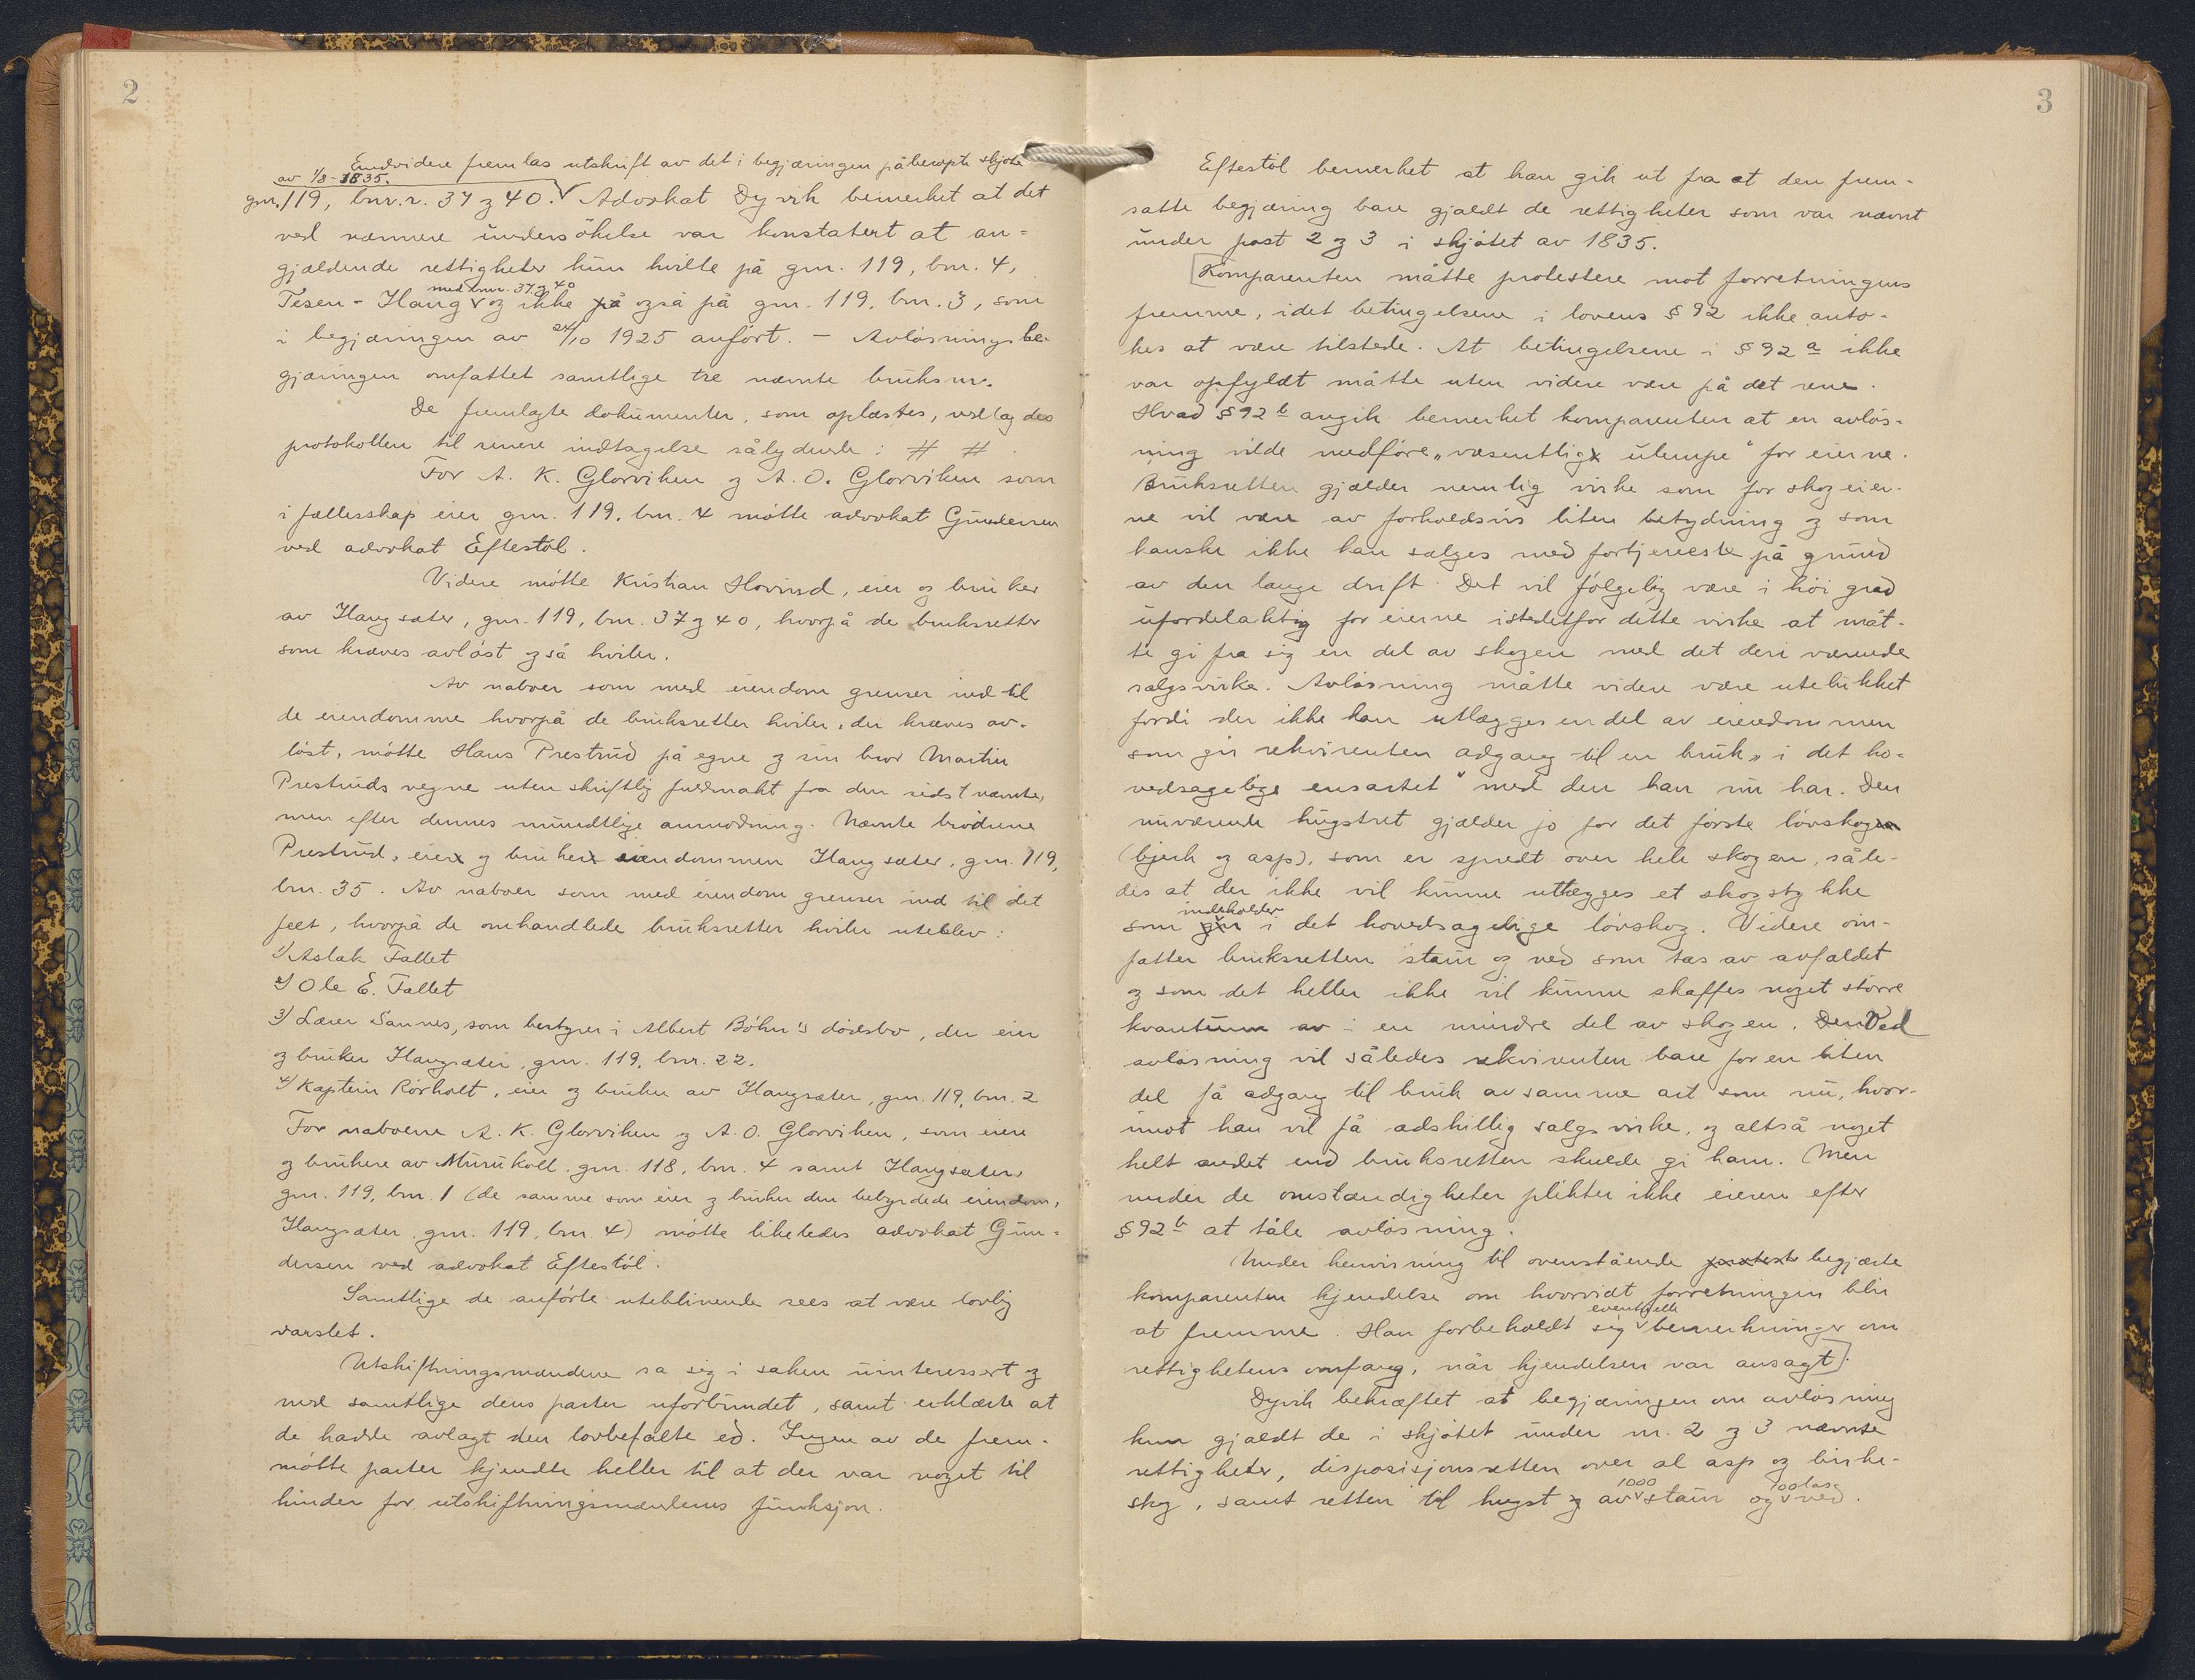 2
Endvidere fremlas utskrift av det i begjæringen påberopte skjöte
av 1/8-1835.
gnr. 119, bnr.r. 37 og 40. Advokat Dyvik bemerket at det
ved nærmere undersökelse var konstatert at an-
gjældende rettigheter kun hvilte på gnr. 119, bnr. 4,
med bnr. 37 og 40
Tesen-Haug og ikke på også på gnr. 119, bnr. 3, som
i begjæringen av 24/10 1925 anfört. - Avlösningsbe-
gjæringen omfattet samtlige tre nævnte bruksnr.
De fremlagte dokumenter, som oplæstes, vedlagdes
protokollen til senere indtagelse sålydende: # #
For A. K. Glorviken og A. O. Glorviken som
i fællesskap eier gnr. 119, bnr. 4 mötte advokat Gundersen
ved advokat Eftestöl.
Videre mötte Kristian Hovind, eier og bruker
av Haugsæter, gnr. 119, bnr. 37 og 40, hvorpå de bruksretter
som kræves avlöst også hviler.
Av naboer som med eiendom grenser ind til
de eiendomme hvorpå de bruksretter hviler, der kræves av-
löst, mötte Hans Prestrud på egne og sin bror Martin
Prestruds vegne uten skriftlig fuldmakt fra den sidst nævnte,
men efter dennes mundtlige anmodning. Nævnte brödrene
Prestrud, eier og bruker eiendommen Haugsæter, gnr. 119,
bnr. 35. Av naboer som med eiendom grenser ind til det
felt, hvorpå de omhandlede bruksretter hviler uteblev:
1) Aslak Fallet
2) Ole E. Fallet
3) Lærer Sannes, som bestyrer i Albert Böhn's dödsbo, der eier
og bruker Haugsæter, gnr. 119, bnr. 22.
4) Kaptein Rörholt, eier og bruker av Haugsæter, gnr. 119, bnr. 2
For naboerne A. K. Glorviken og A. O. Glorviken, som eiere
og brukere av Murukoll, gnr. 118, bnr. 4 samt Haugsæter,
gnr. 119, bnr. 1 (de samme som eier og bruker den bebyrdede eiendom,
Haugsæter, gnr. 119, bnr. 4) mötte likeledes advokat Gun-
dersen ved advokat Eftestöl.
Samtlige de anförte uteblivende sees at være lovlig
varslet.
Utskiftningsmændene sa sig i saken uinteressert og
med samtlige dens parter uforbundet, samt erklærte at
de hadde avlagt den lovbefalte ed. Ingen av de frem-
mötte parter kjendte heller til at der var noget til
hinder for utskiftningsmændenes funksjon.
3
Eftestöl bemerket at han gik ut fra at den frem-
satte begjæring bare gjældt de rettigheter som var nævnt
under post 2 og 3 i skjötet av 1835.
[Komparenten måtte protestere mot forretningens
fremme, idet betingelsene i lovens § 92 ikke anto-
kes at være tilstede. At betingelsene i § 92 a ikke
var opfyldt måtte uten videre være på det rene.
Hvad § 92 b angik bemerket komparenten at en avlös-
ning vilde medföre „væsentlig ulempe" for eierne.
Bruksretten gjælder nemlig virke som for skogeier-
ne vil være av forholdsvis liten betydning og som
kanske ikke kan sælges med fortjeneste på grund
av den lange drift. Det vil fölgelig være i höi grad
ufordelaktig for eierne istedetfor dette virke at måt-
te gi fra sig en del av skogen med det deri værende
salgsvirke. Avlösning måtte videre være utelukket
fordi der ikke kan utlægges en del av eiendommen
som gir rekvirenten adgang til en bruk „i det ho-
vedsagelige ensartet" med den han nu har. Den
nuværende hugstret gjælder jo for det förste lövskogen
(bjerk og asp), som er spredt over hele skogen, såle-
des at der ikke vil kunne utlægges et skogstykke
indeholder
som gir i det hovedsagelige lövskog. Videre om-
fatter bruksretten staur og ved som tas av avfaldet
og som det heller ikke vil kunne skaffes noget större
kvantum av i en mindre del av skogen. Den Ved
avlösning vil således rekvirenten bare for en liten
del få adgang til bruk av samme art som nu, hvor-
imot han vil få adskillig salgsvirke, og altså noget
helt andet end bruksretten skulde gi ham. Men
under de omstændigheter plikter ikke eieren efter
§ 92 b at tåle avlösning.
Under henvisning til ovenstående protest begjærte
komparenten kjendelse om hvorvidt forretningen blir
eventuelle
at fremme. Han forbeholdt sig bemerkninger om
rettighetens omfang, når kjendelsen var avsagt].
Dyvik bekræftet at begjæringen om avlösning
kun gjældt de i skjötet under nr. 2 og 3 nævnte
rettigheter, disposisjonsretten over al asp og birke-
1000 100 las
skog, samt retten til hugst og av staur og ved.